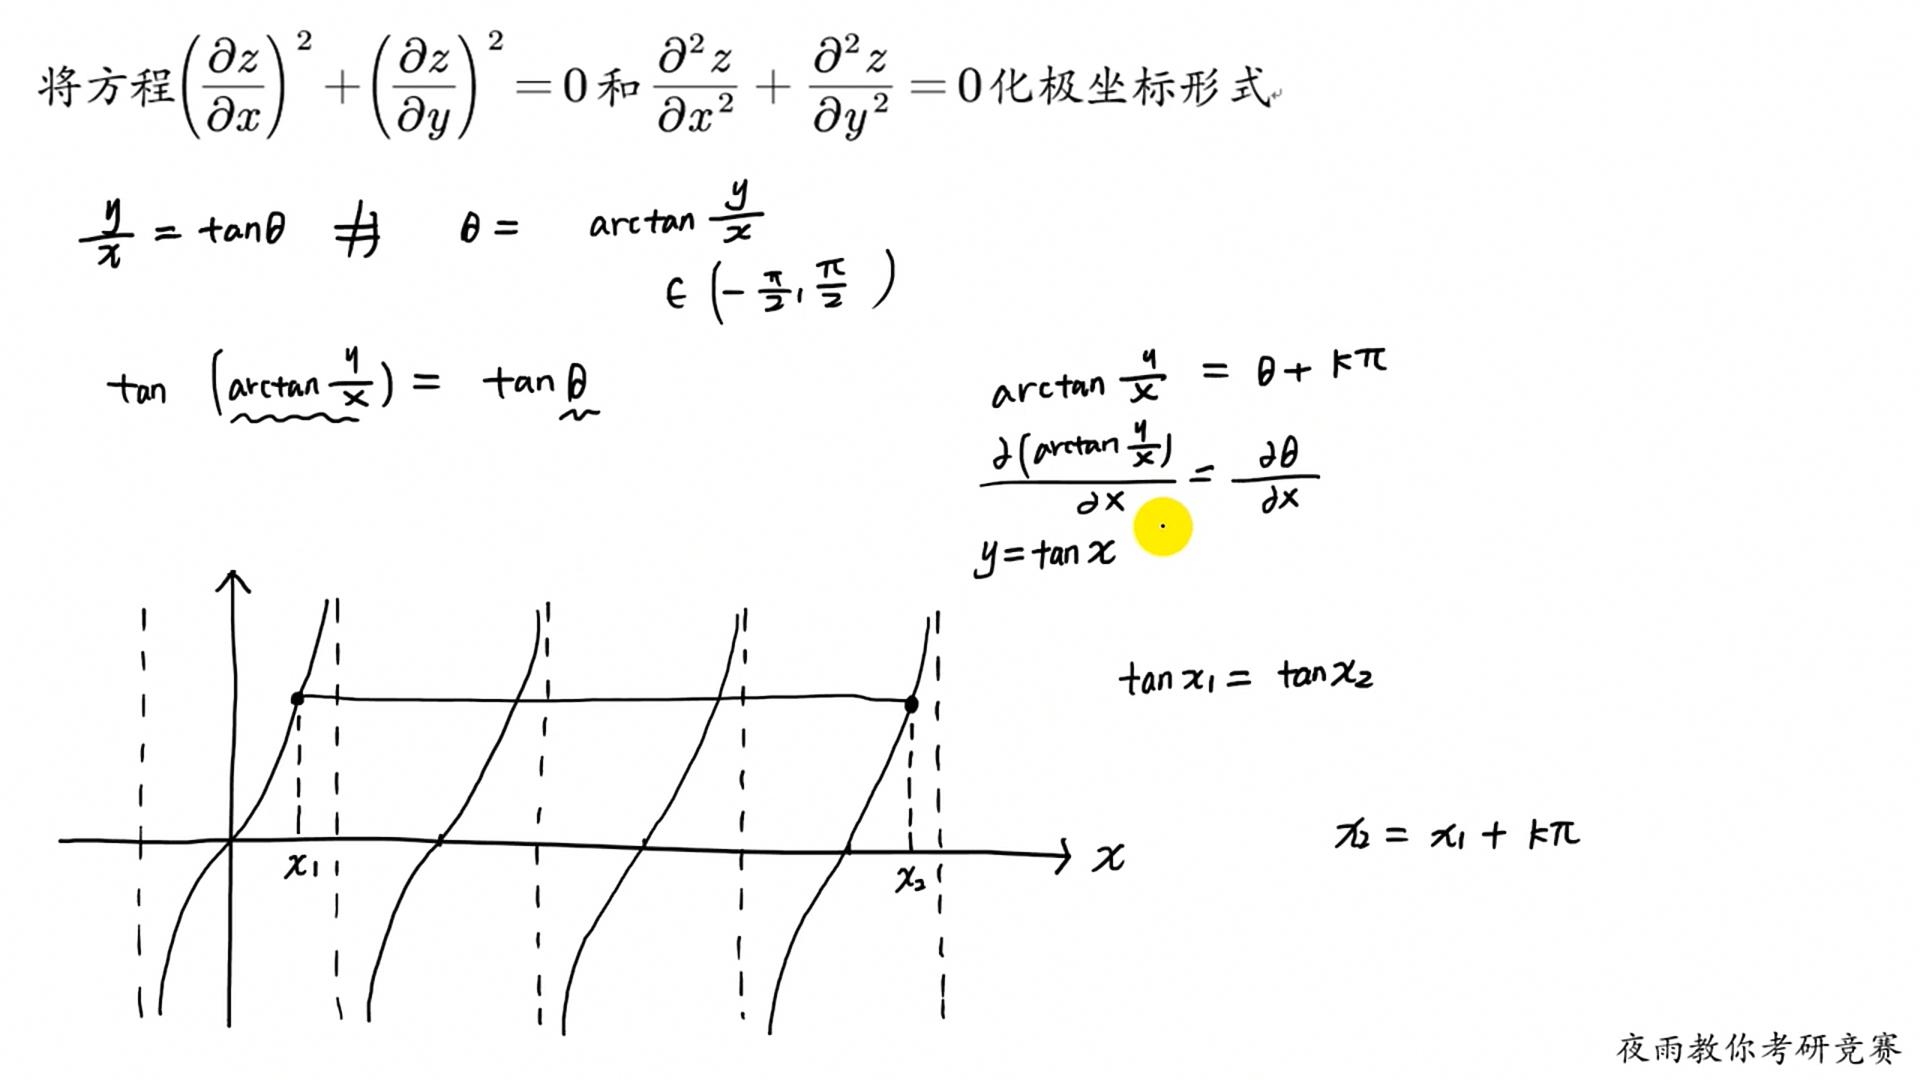 将方程(∂z/∂x)² + (∂z/∂y)² = 0 和 ∂²z/∂x² + ∂²z/∂y² = 0 化极坐标形式
y/x = tanθ ⇏ θ = arctan y/x
∈ (-π/2, π/2)
tan (arctan y/x) = tan θ
arctan y/x = θ + kπ
∂(arctan y/x)/∂x = ∂θ/∂x
y = tan x
tan x₁ = tan x₂
x₂ = x₁ + kπ
x₁ x₂ x
夜雨教你考研竞赛